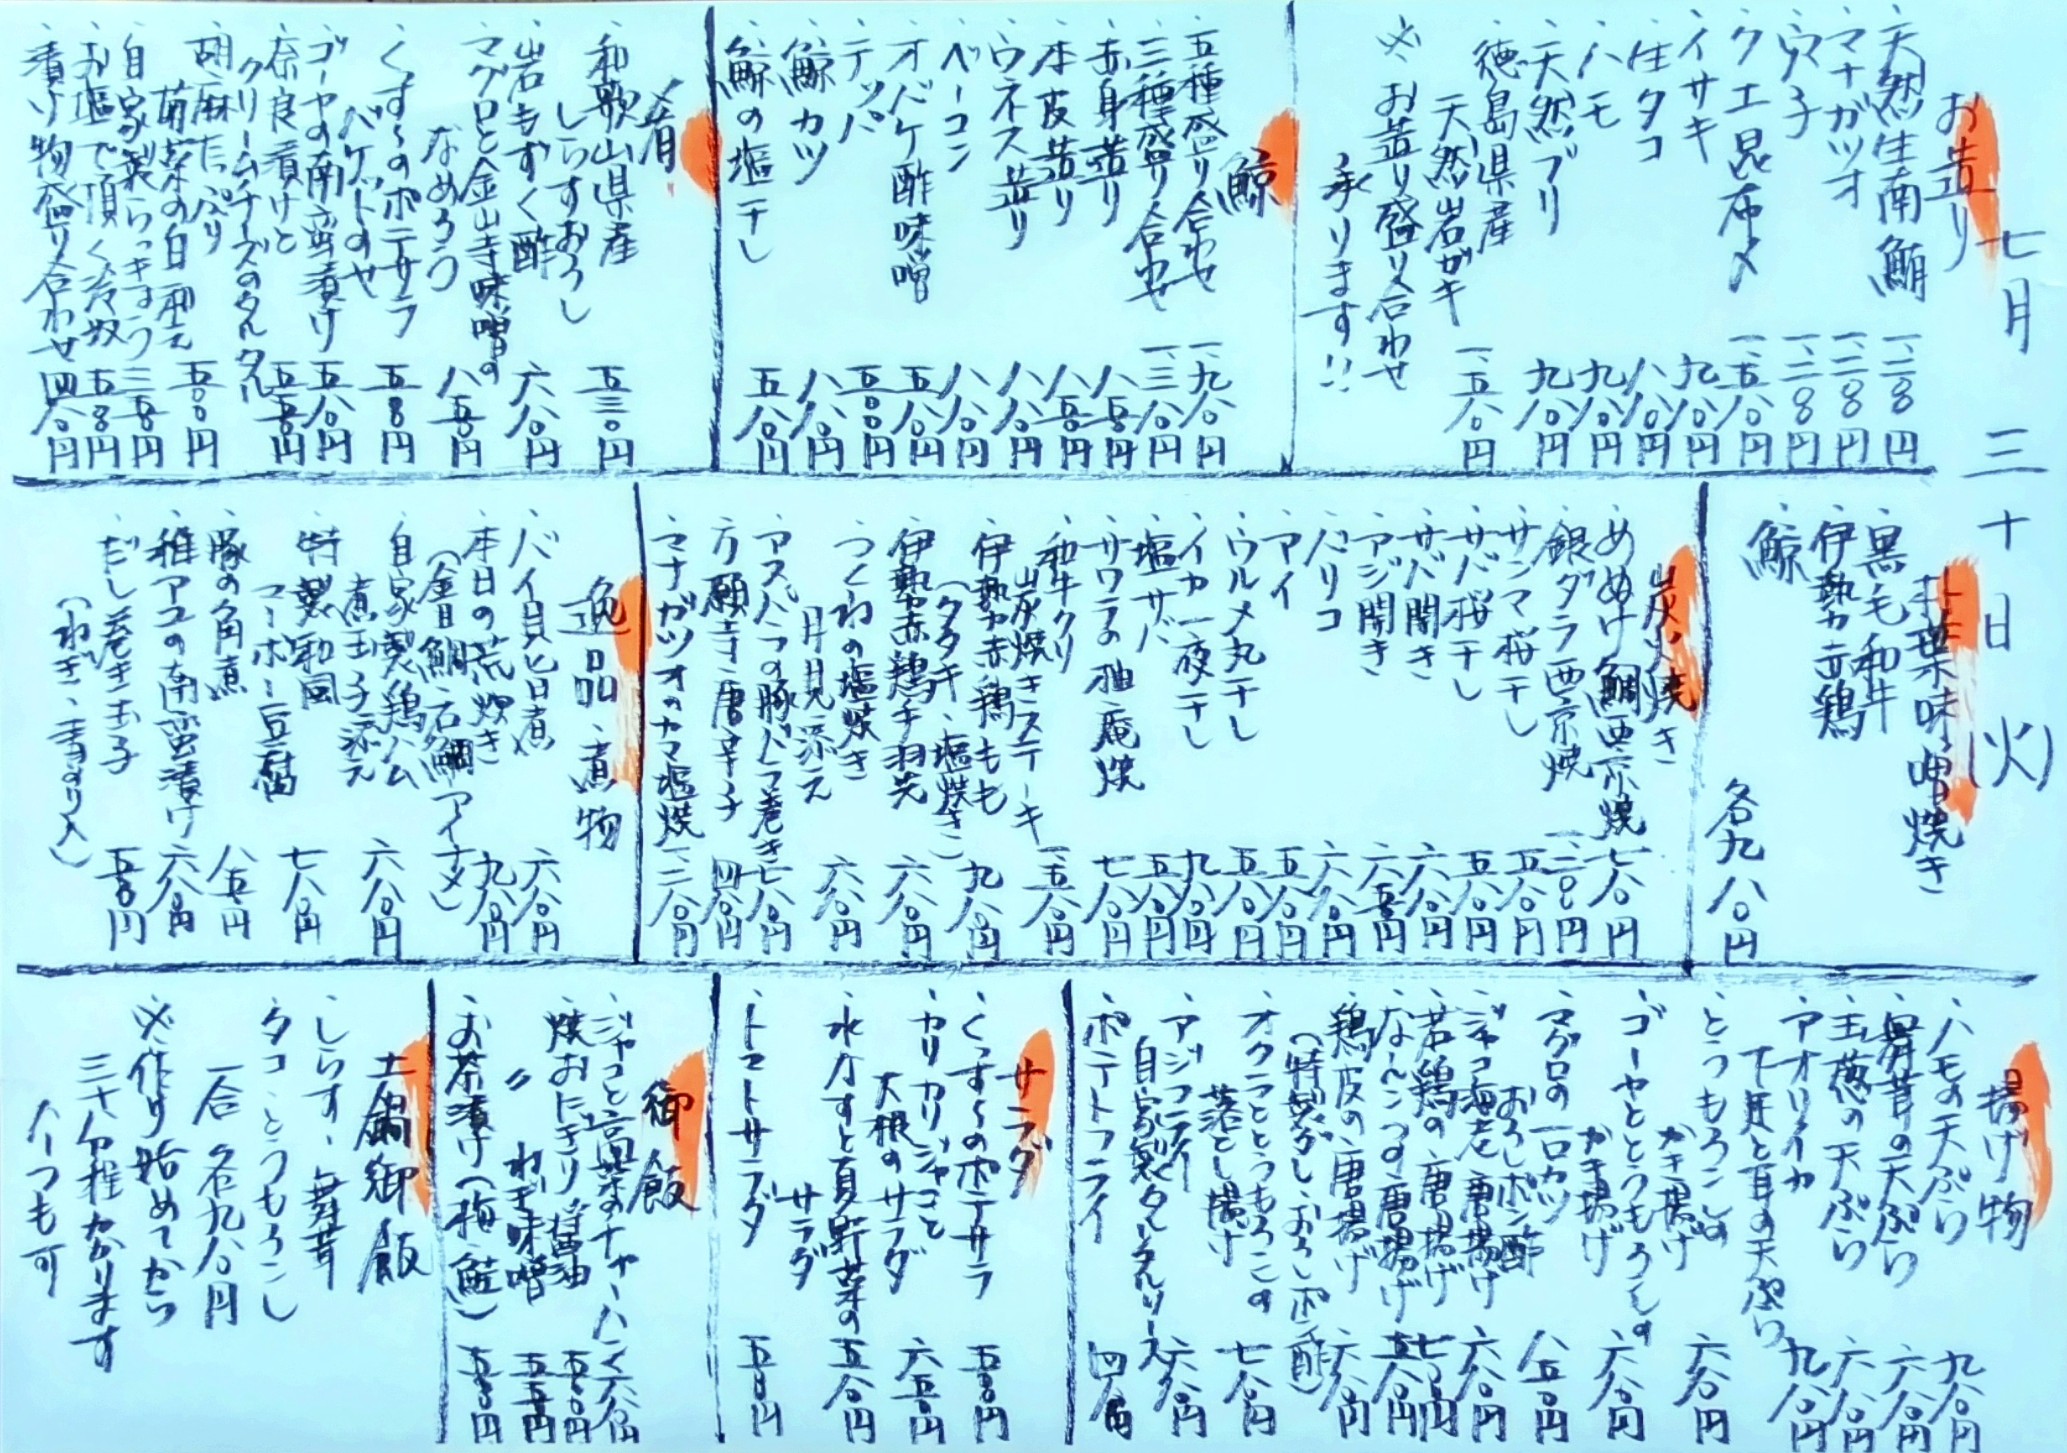 七月三十日(火)
お造り
・天然生南鮪 一、二八〇円
・マナガツオ 一、二八〇円
・ウマヅラ子
・クエ昆布〆 一、五八〇円
・イサキ 九八〇円
・生タコ 八八〇円
・ハモ 九八〇円
・天然ブリ 九八〇円
・徳島県産
天然岩ガキ 一、五八〇円
※お造り盛り合わせ
承ります!!
鯨
・五種盛り合わせ 一、九八〇円
・三種盛り合わせ 一、三八〇円
・赤身造り 八五〇円
・本皮造り 八五〇円
・ウネス造り 八八〇円
・ベーコン 八八〇円
・オバケ酢味噌 五八〇円
・テッパ 五〇〇円
・鯨カツ 八八〇円
・鯨の塩干し 五八〇円
肴
・和歌山県産
しらすおろし 五三〇円
・岩もずく酢 六八〇円
・マグロと金山寺味噌の
なめろう 八五〇円
・くずしのポテサラ
バケットのせ 五八〇円
・ゴーヤの南蛮漬け 五八〇円
・奈良漬けと
クリームチーズのタルタル 五五〇円
・胡麻たっぷり
青菜の白和え 五〇〇円
・自家製らっきょう 三五〇円
・お塩で頂く冷奴 五八〇円
・漬け物盛り合わせ 四八〇円
朴葉味噌焼き
・黒毛和牛
・伊勢赤鶏
・鯨
各九八〇円
炭火焼き
・めぬけ鯛西京焼 七八〇円
・銀ダラ西京焼 一、二〇〇円
・サンマ桜干し 五八〇円
・サバ桜干し 五八〇円
・サバ開き 六八〇円
・アジ開き 六五〇円
・バリコ 六八〇円
・アイ 五八〇円
・ウルメ丸干し 五八〇円
・イカ一夜干し 九八〇円
・塩サバ 五八〇円
・サワラの柚庵焼 七八〇円
・和牛クリ
炭焼きステーキ 一、五八〇円
・伊勢赤鶏もも
(タタキ・塩焼き) 九八〇円
・伊勢赤鶏手羽先 六八〇円
・つくねの塩焼き
月見添え 六八〇円
・アスパラの豚トロ巻き 七八〇円
・万願寺唐辛子 四八〇円
・マナガツオのカマ塩焼 一、二八〇円
逸品・煮物
・バイ貝旨煮 六八〇円
・本日の荒炊き 九八〇円
(金目鯛・石鯛・アイナメ)
・自家製鶏ハム
煮玉子添え 六八〇円
・特製和風
マーボー豆腐 七八〇円
・豚の角煮 八五〇円
・稚アユの南蛮漬け 六八〇円
・だし巻き玉子 五五〇円
(ねぎ・青のり入)
揚げ物
・ハモの天ぷら 九八〇円
・舞茸の天ぷら 六八〇円
・玉葱の天ぷら 六八〇円
・アオリイカ
下足と耳の天ぷら 九八〇円
・とうもろこしの
かき揚げ 六八〇円
・ゴーヤととうもろこしの
かき揚げ 六八〇円
・マグロの一口カツ
おろしポン酢 八五〇円
・ジャコ海老唐揚げ 六八〇円
・若鶏の唐揚げ 七五〇円
・なんこつの唐揚げ 五八〇円
・鶏皮の唐揚げ 六八〇円
(特製だし・おろしポン酢)
・オクラととうもろこしの
落とし揚げ 七八〇円
・アジフライ
自家製タルタルソース 六八〇円
・ポテトフライ 四八〇円
サラダ
・くずしのポテサラ 五〇〇円
・カリカリジャコと
大根のサラダ 六五〇円
・水ナスと夏野菜の
サラダ 五八〇円
・トマトサラダ 五八〇円
御飯
・ジャコと高菜のチャーハン 六八〇円
・焼おにぎり 醤油 五〇〇円
〃 ねぎ味噌 五五〇円
・お茶漬け(梅・鮭) 五〇〇円
土鍋御飯
・しらす・舞茸
・タコ・とうもろこし
一合 各九八〇円
※作り始めてから
三十分程かかります
ハーフも可